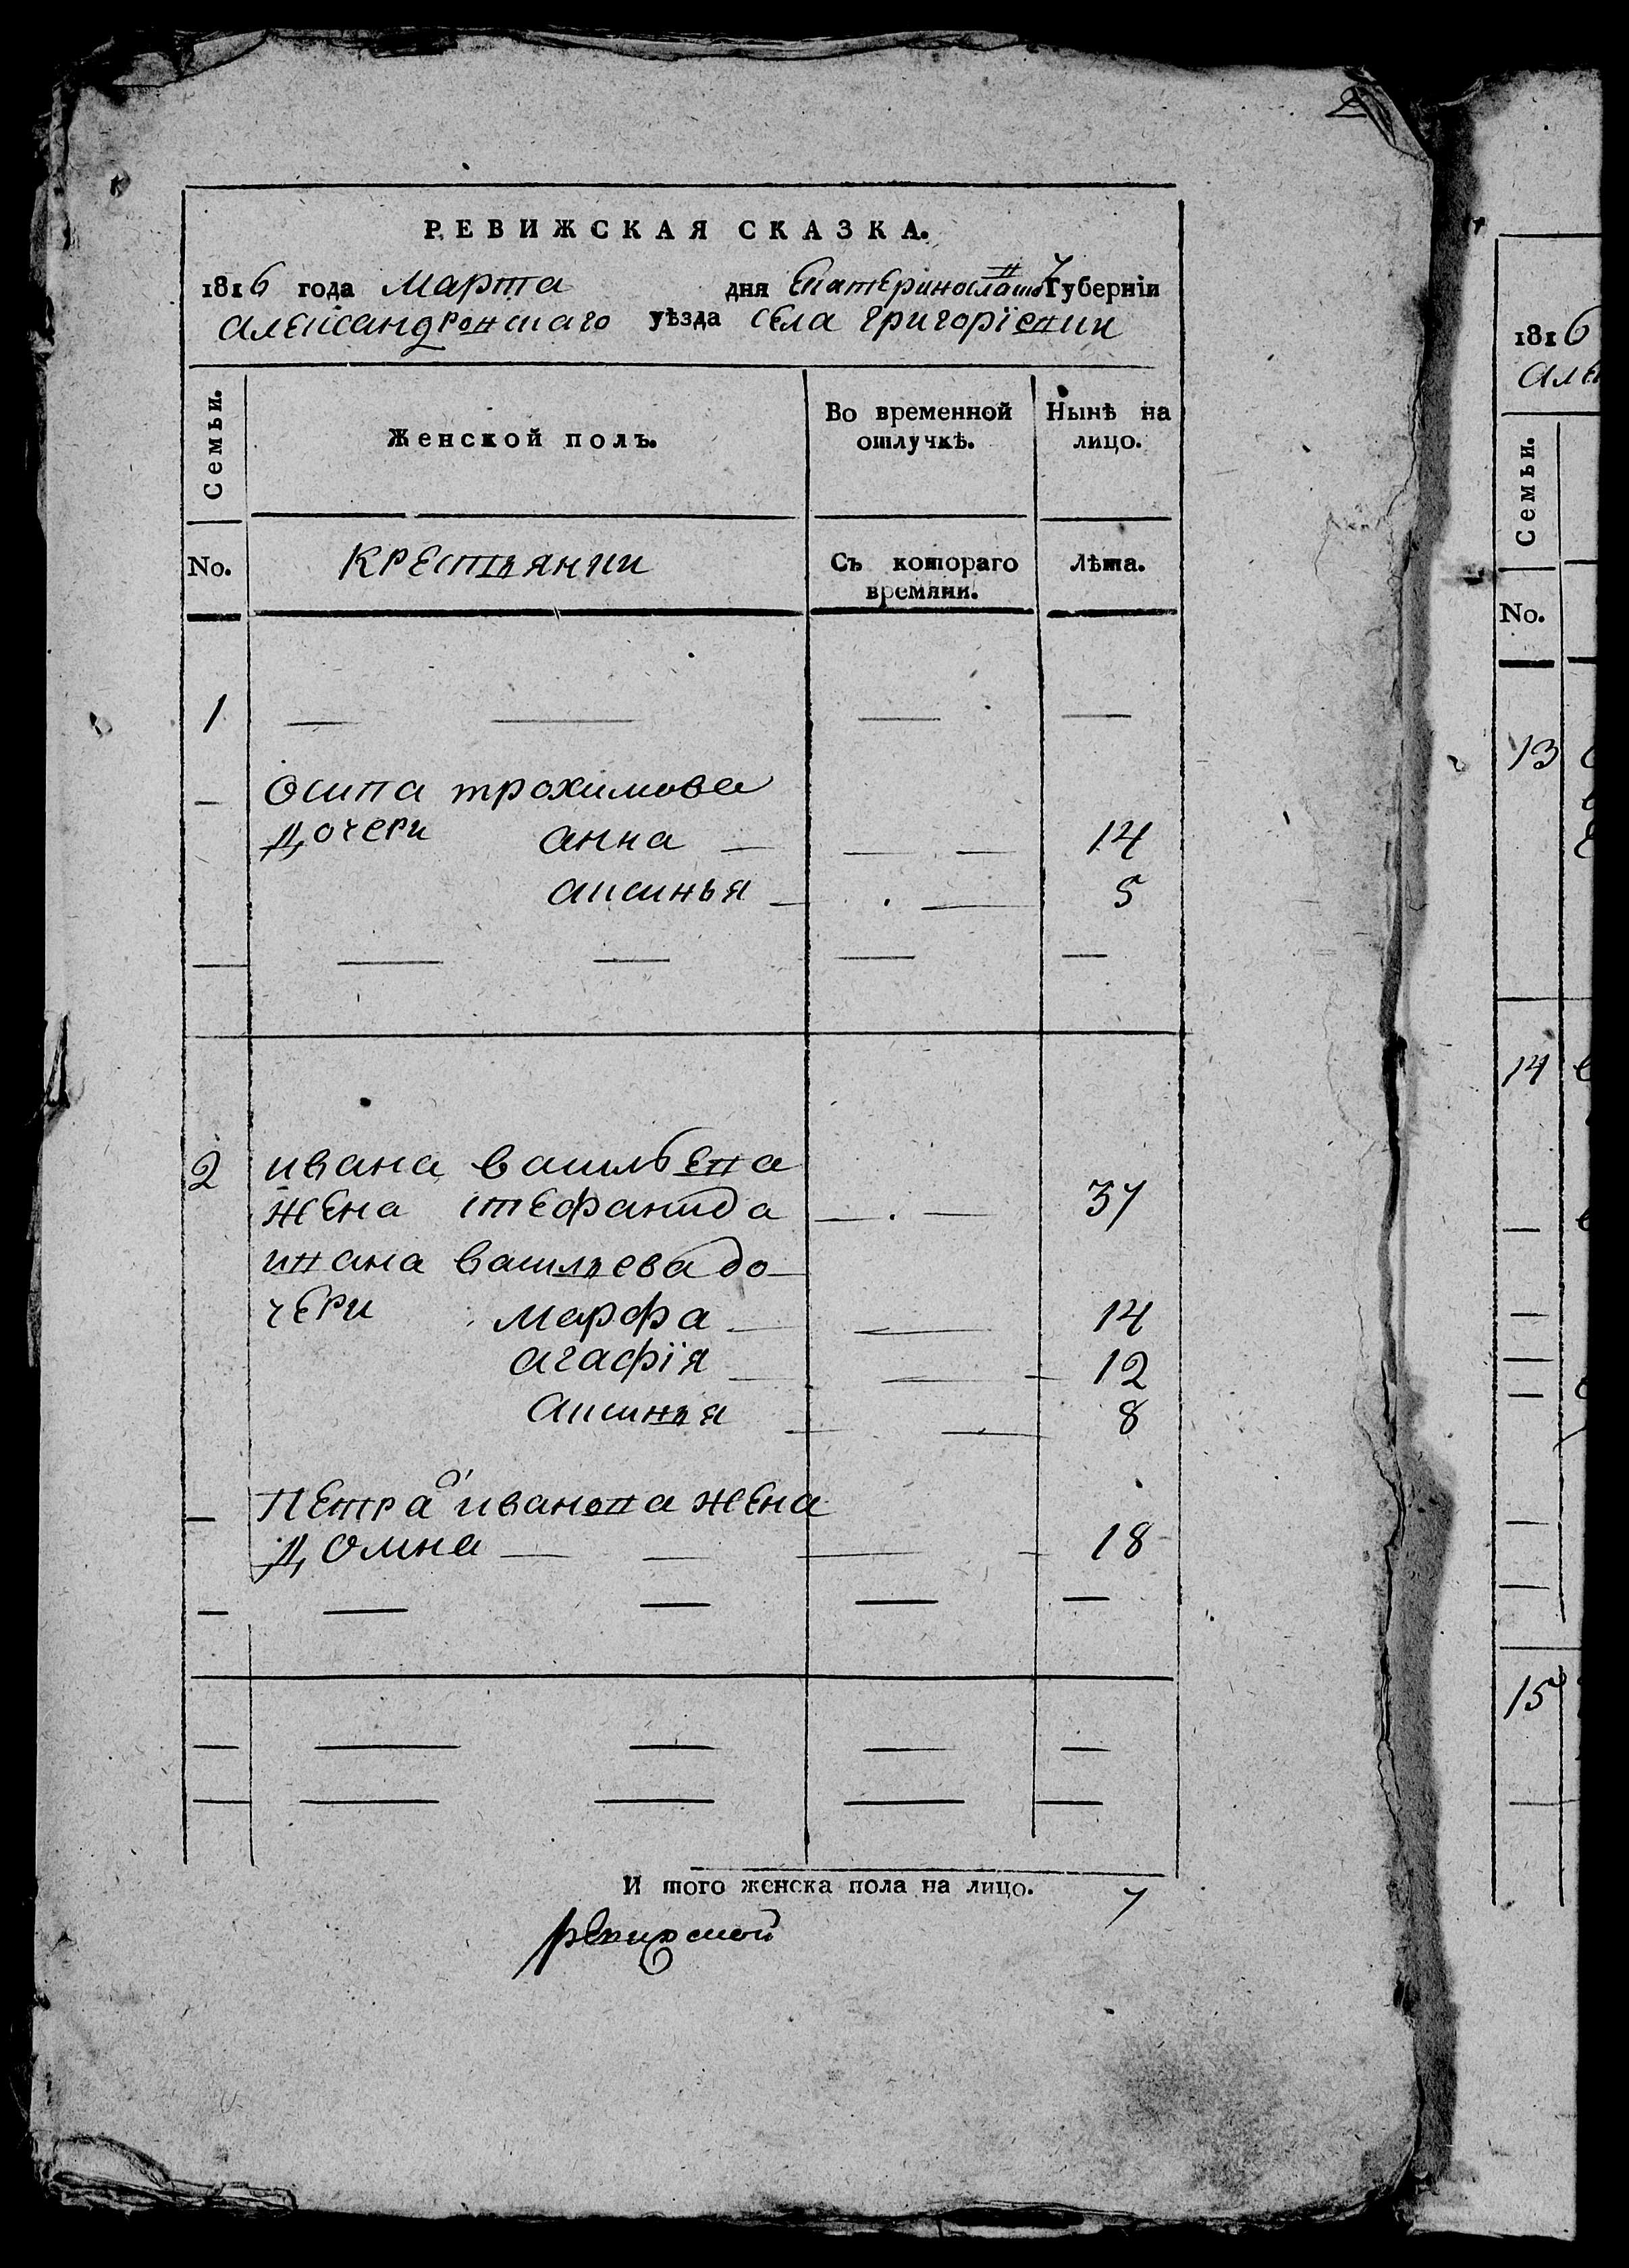 2
РЕВИЖСКАЯ СКАЗКА.
1816 года Марта дня Екатеринославской Губерніи
александровскаго уѣзда села григоріевки
Семьи.
Женской полъ.
Во временной отлучкѣ.
Нынѣ на лицо.
No.
крестьянки
Съ котораго времяни.
лѣта.
1
осипа трохимова
дочери анна 14
аксинья 5
2 ивана васильева
жена стефанида 37
ивана васильева до
чери марфа 14
агафія 12
аксинья 8
петра иванова жена
домна 18
И того женска пола на лицо. 7
1816
Семьи.
No.
13
14
15